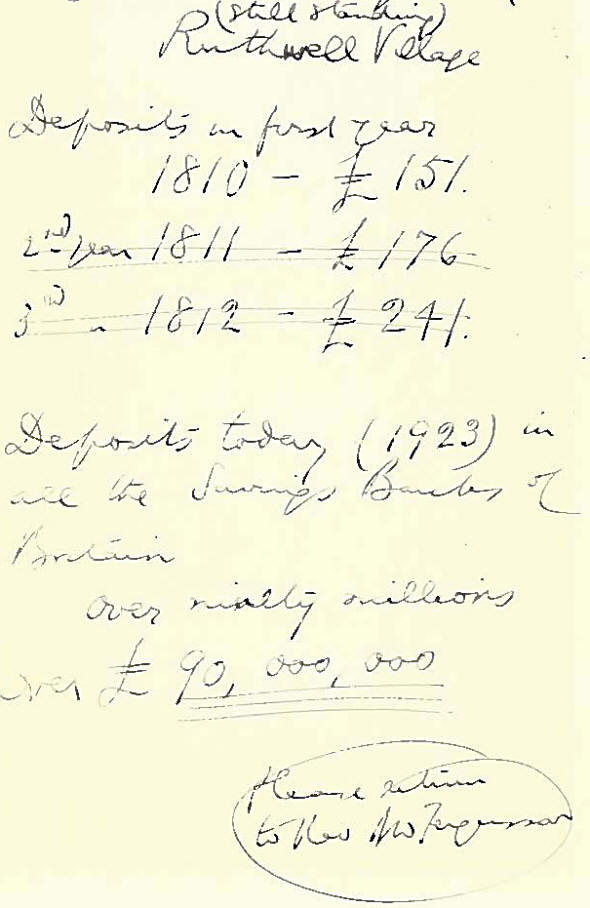 (still standing)
Ruthwell Village
Deposits in first year
1810 - £151.
2nd year 1811 - £176
3rd " 1812 - £241.
Deposits today (1923) in
all the Savings Banks of
Britain
over ninety millions
over £90,000,000
Please return
to Rev Fergusson